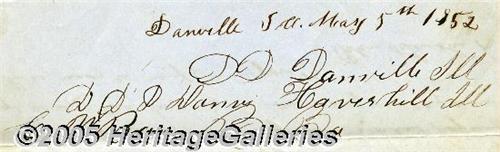 Danville Ill. May 5th 1852
D D Danville Ill
D D P Danvi Haverhill Ill
©2005 HeritageGalleries